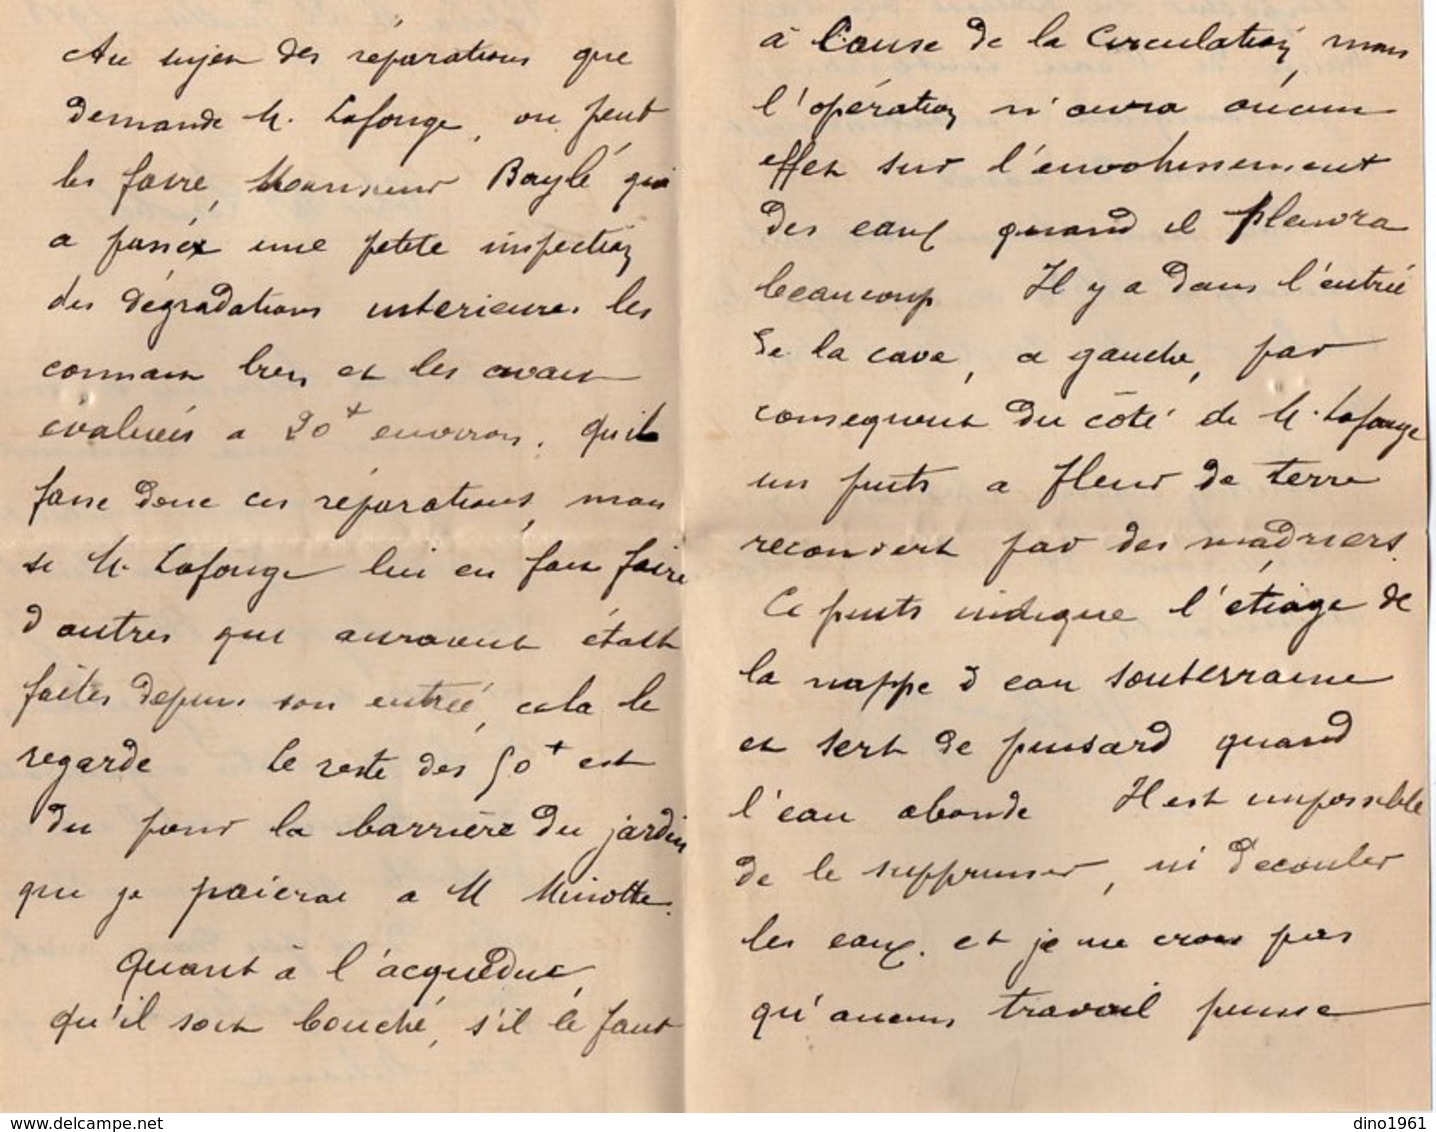 Au sujet des réparations que
demande M. Lafouge, on peut
les faire, Monsieur Baylé qui
a passé une petite inspection
des dégradations interieures les
connait bien et les avait
évaluées a 20+ environ. qu'il
fasse donc ces réparations, mais
si M. Lafouge lui en fait faire
d'autres qui auraient était
faites depuis son entrée, cela le
regarde le reste des 50+ est
du pour la barrière du jardin
que je paierai a M Minotte.
Quant à l'acquéduc,
qu'il soit bouché, s'il le faut
à cause de la Circulation, mais
l'opération n'aura aucun
effet sur l'envahissement
des eaux quand il pleuvra
beaucoup Il y a dans l'entrée
de la cave, a gauche, par
consequent du côté de M. Lafouge
un puits a fleur de terre
recouvert par des madriers.
Ce puits indique l'étiage de
la nappe d eau souterraine
et sert de puisard quand
l'eau abonde Il est impossible
de le supprimer, ni d'ecouler
les eaux. et je ne crois pas
qu'aucun travail puisse
dino1961